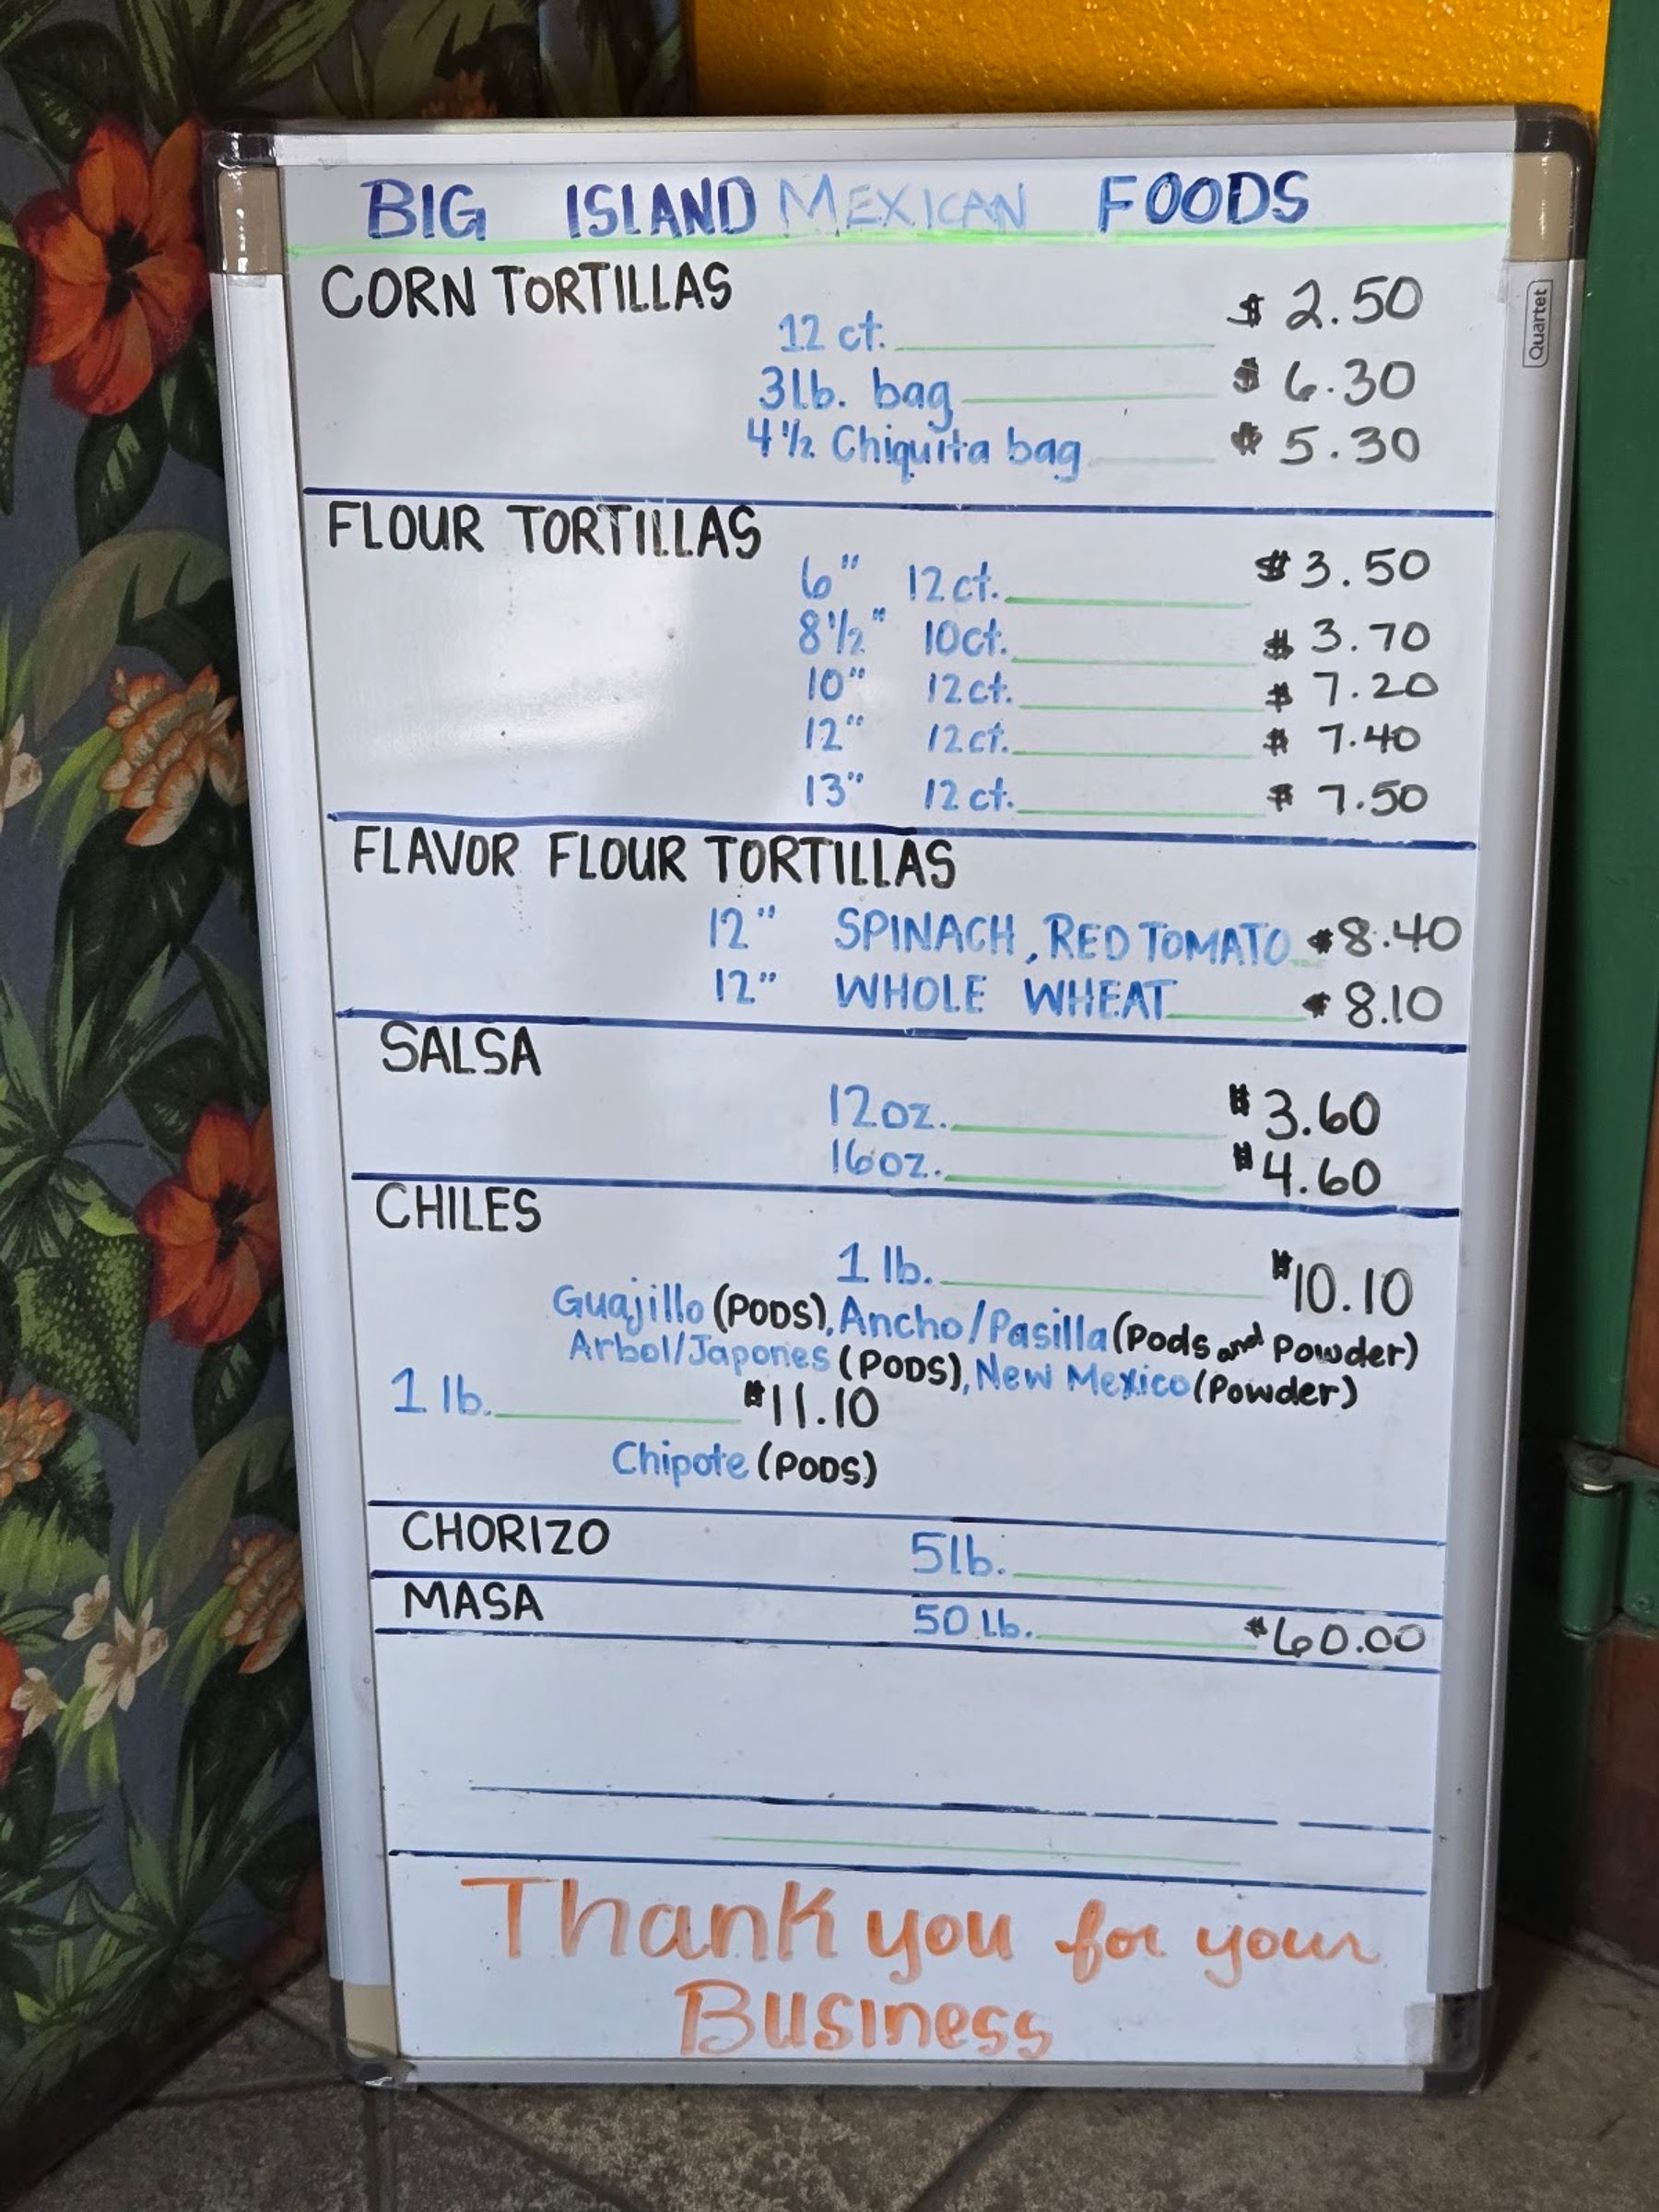 BIG ISLAND MEXICAN FOODS
Quartet
CORN TORTILLAS
12 ct. $ 2.50
3lb. bag $ 6.30
4 1/2 Chiquita bag $ 5.30
FLOUR TORTILLAS
6" 12ct. $ 3.50
8 1/2" 10ct. $ 3.70
10" 12ct. $ 7.20
12" 12ct. $ 7.40
13" 12ct. $ 7.50
FLAVOR FLOUR TORTILLAS
12" SPINACH, RED TOMATO $8.40
12" WHOLE WHEAT $8.10
SALSA
12oz. $3.60
16oz. $4.60
CHILES
1 lb. $10.10
Guajillo (PODS), Ancho/Pasilla (Pods and Powder)
Arbol/Japones (PODS), New Mexico (Powder)
1 lb. $11.10
Chipote (PODS)
CHORIZO 5lb.
MASA 50 lb. $60.00
Thank you for your
Business